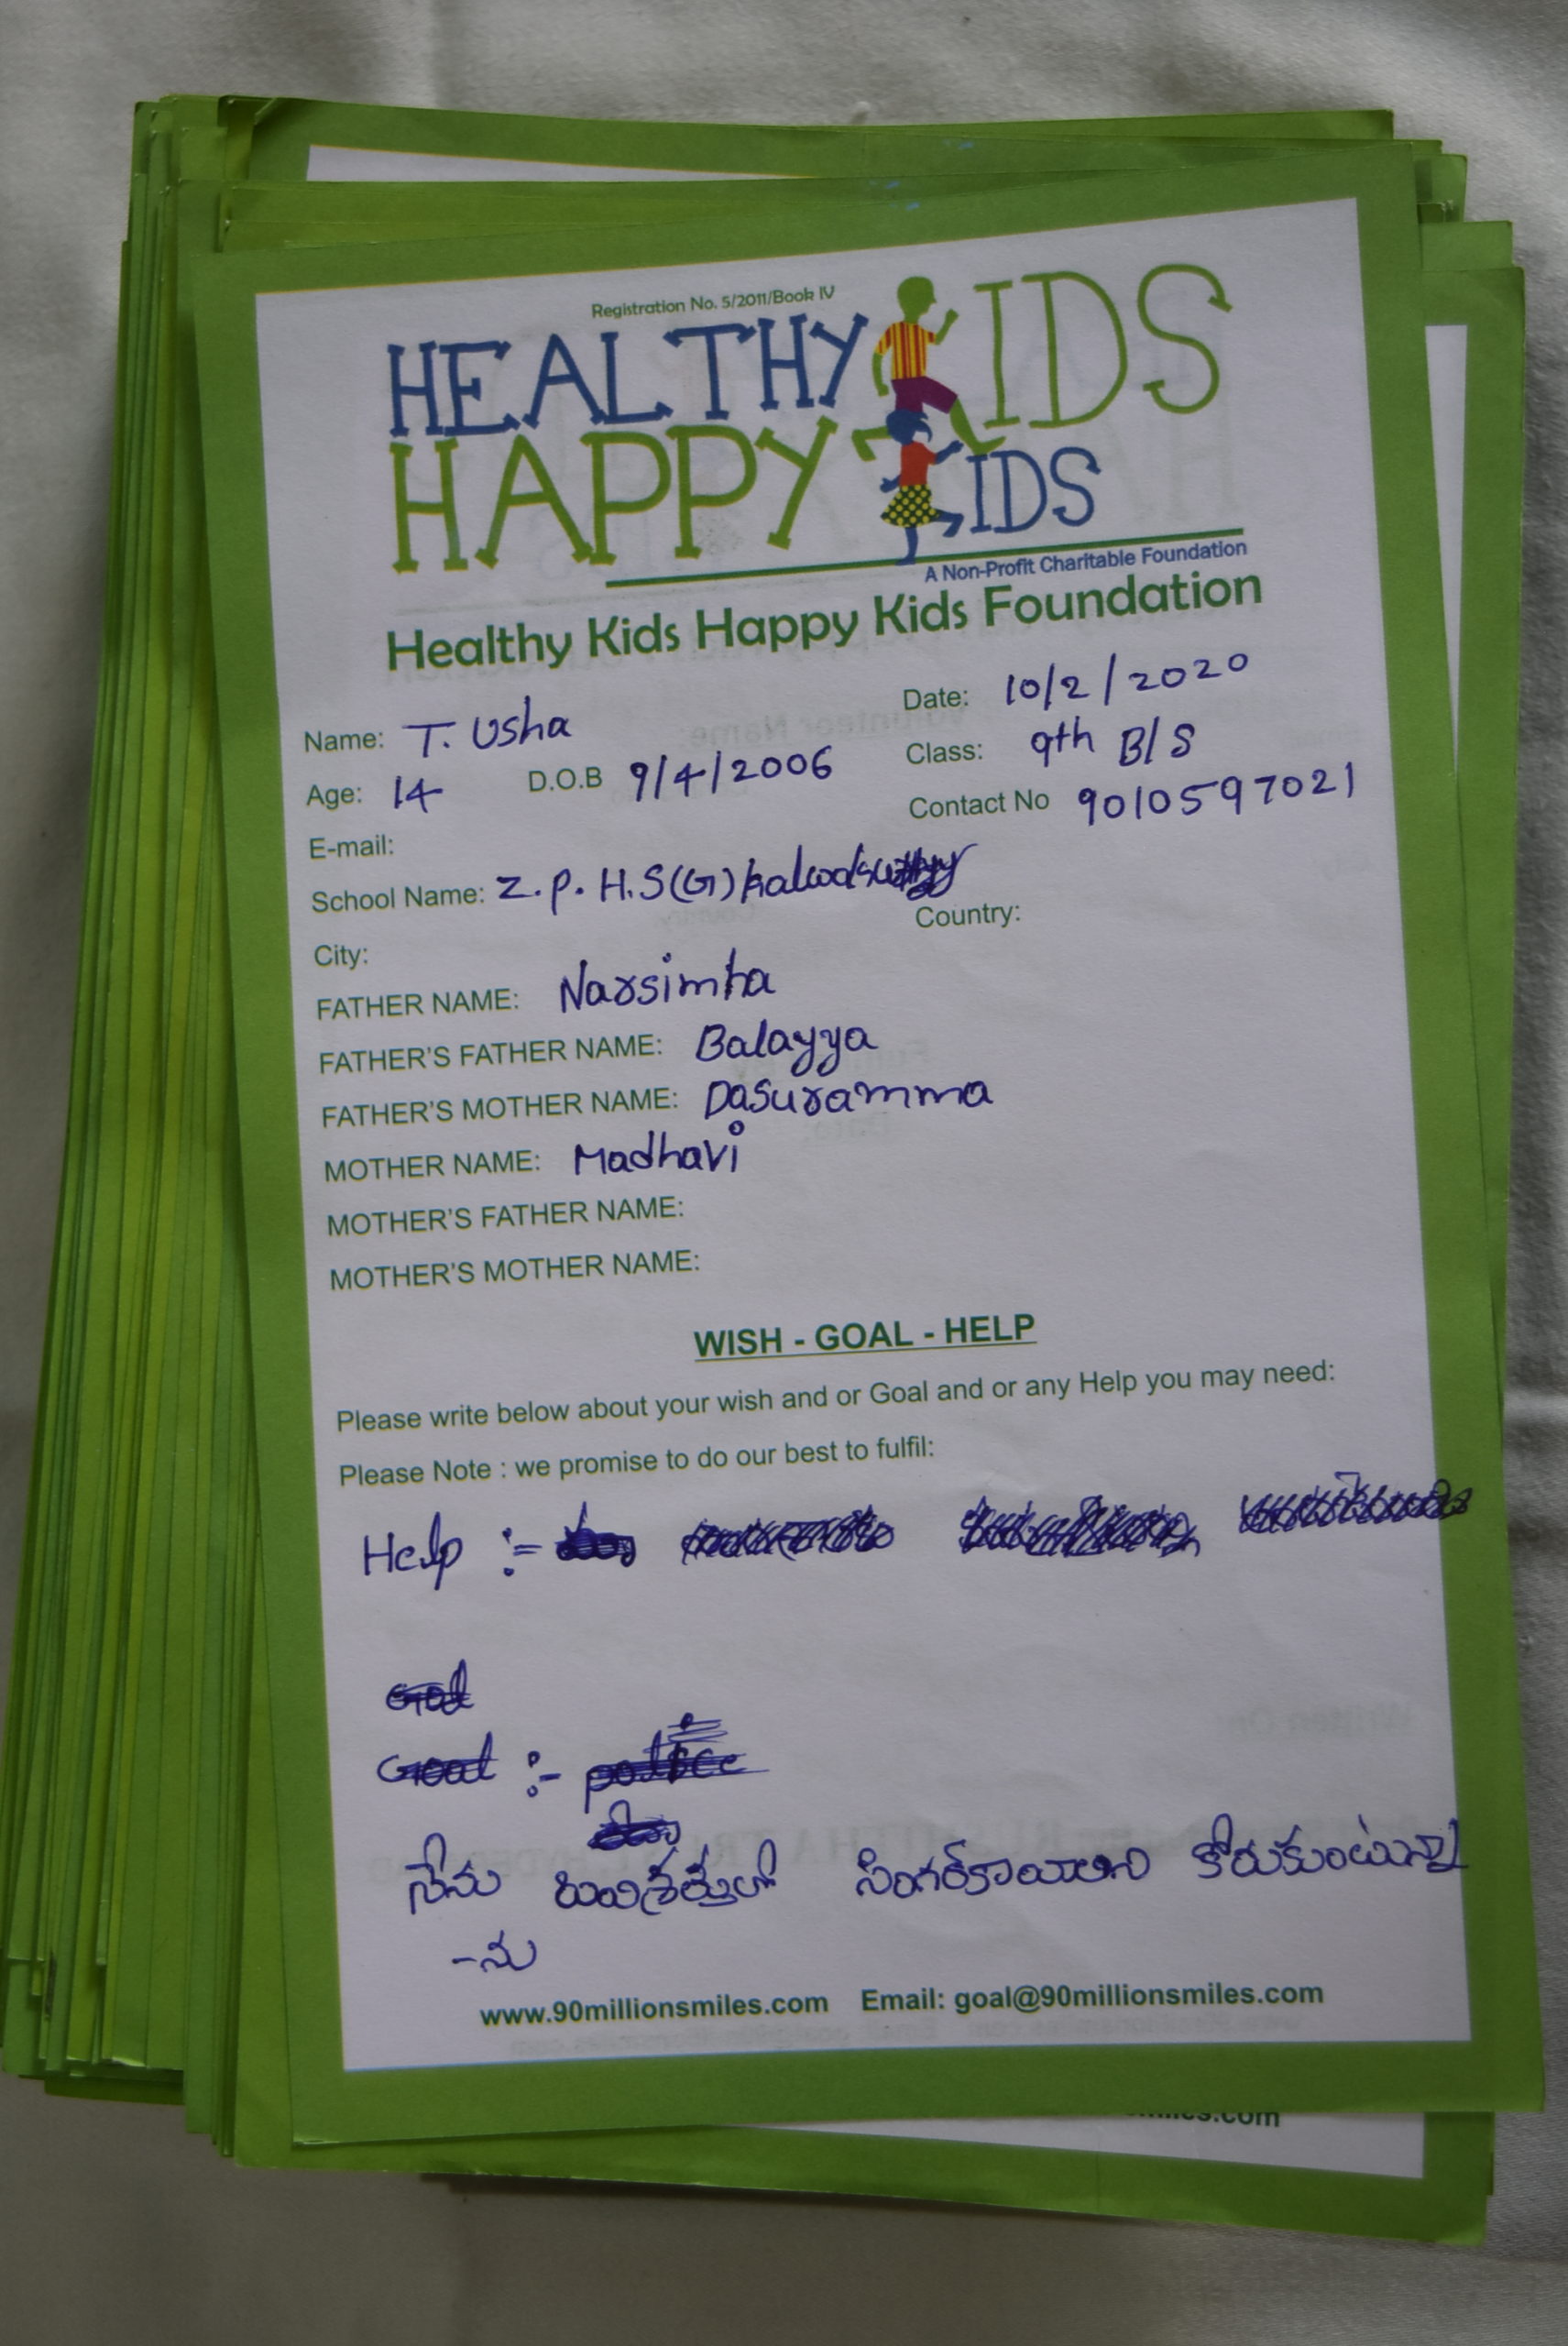 Registration No. 5/2011/Book IV
HEALTHY KIDS
HAPPY KIDS
A Non-Profit Charitable Foundation
Healthy Kids Happy Kids Foundation
Name: T. Usha Date: 10/2/2020
Age: 14 D.O.B 9/4/2006 Class: 9th B/S
E-mail: Contact No 9010597021
School Name: Z.P.H.S(G)
City: Country:
FATHER NAME: Narsimha
FATHER'S FATHER NAME: Balayya
FATHER'S MOTHER NAME: Dasuramma
MOTHER NAME: Madhavi
MOTHER'S FATHER NAME:
MOTHER'S MOTHER NAME:
WISH - GOAL - HELP
Please write below about your wish and or Goal and or any Help you may need:
Please Note : we promise to do our best to fulfil:
Help :-
Goal :- police
నేను సింగర్‌కాయాలని కోరుకుంటున్నా
-ను
www.90millionsmiles.com Email: goal@90millionsmiles.com